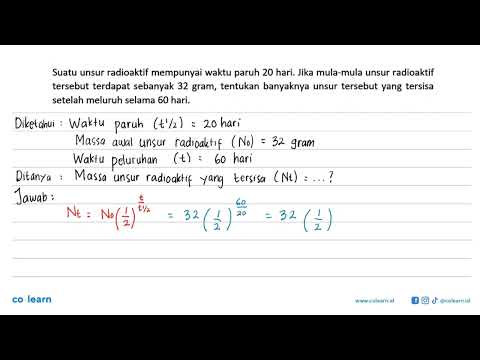 Suatu unsur radioaktif mempunyai waktu paruh 20 hari. Jika mula-mula unsur radioaktif
tersebut terdapat sebanyak 32 gram, tentukan banyaknya unsur tersebut yang tersisa
setelah meluruh selama 60 hari.
Diketahui : Waktu paruh (t½) = 20 hari
Massa awal unsur radioaktif (No) = 32 gram
Waktu peluruhan (t) = 60 hari
Ditanya : Massa unsur radioaktif yang tersisa (Nt) = ... ?
Jawab :
Nt = No (1/2)^(t/t½) = 32 (1/2)^(60/20) = 32 (1/2)
co learn
www.colearn.id @colearn.id